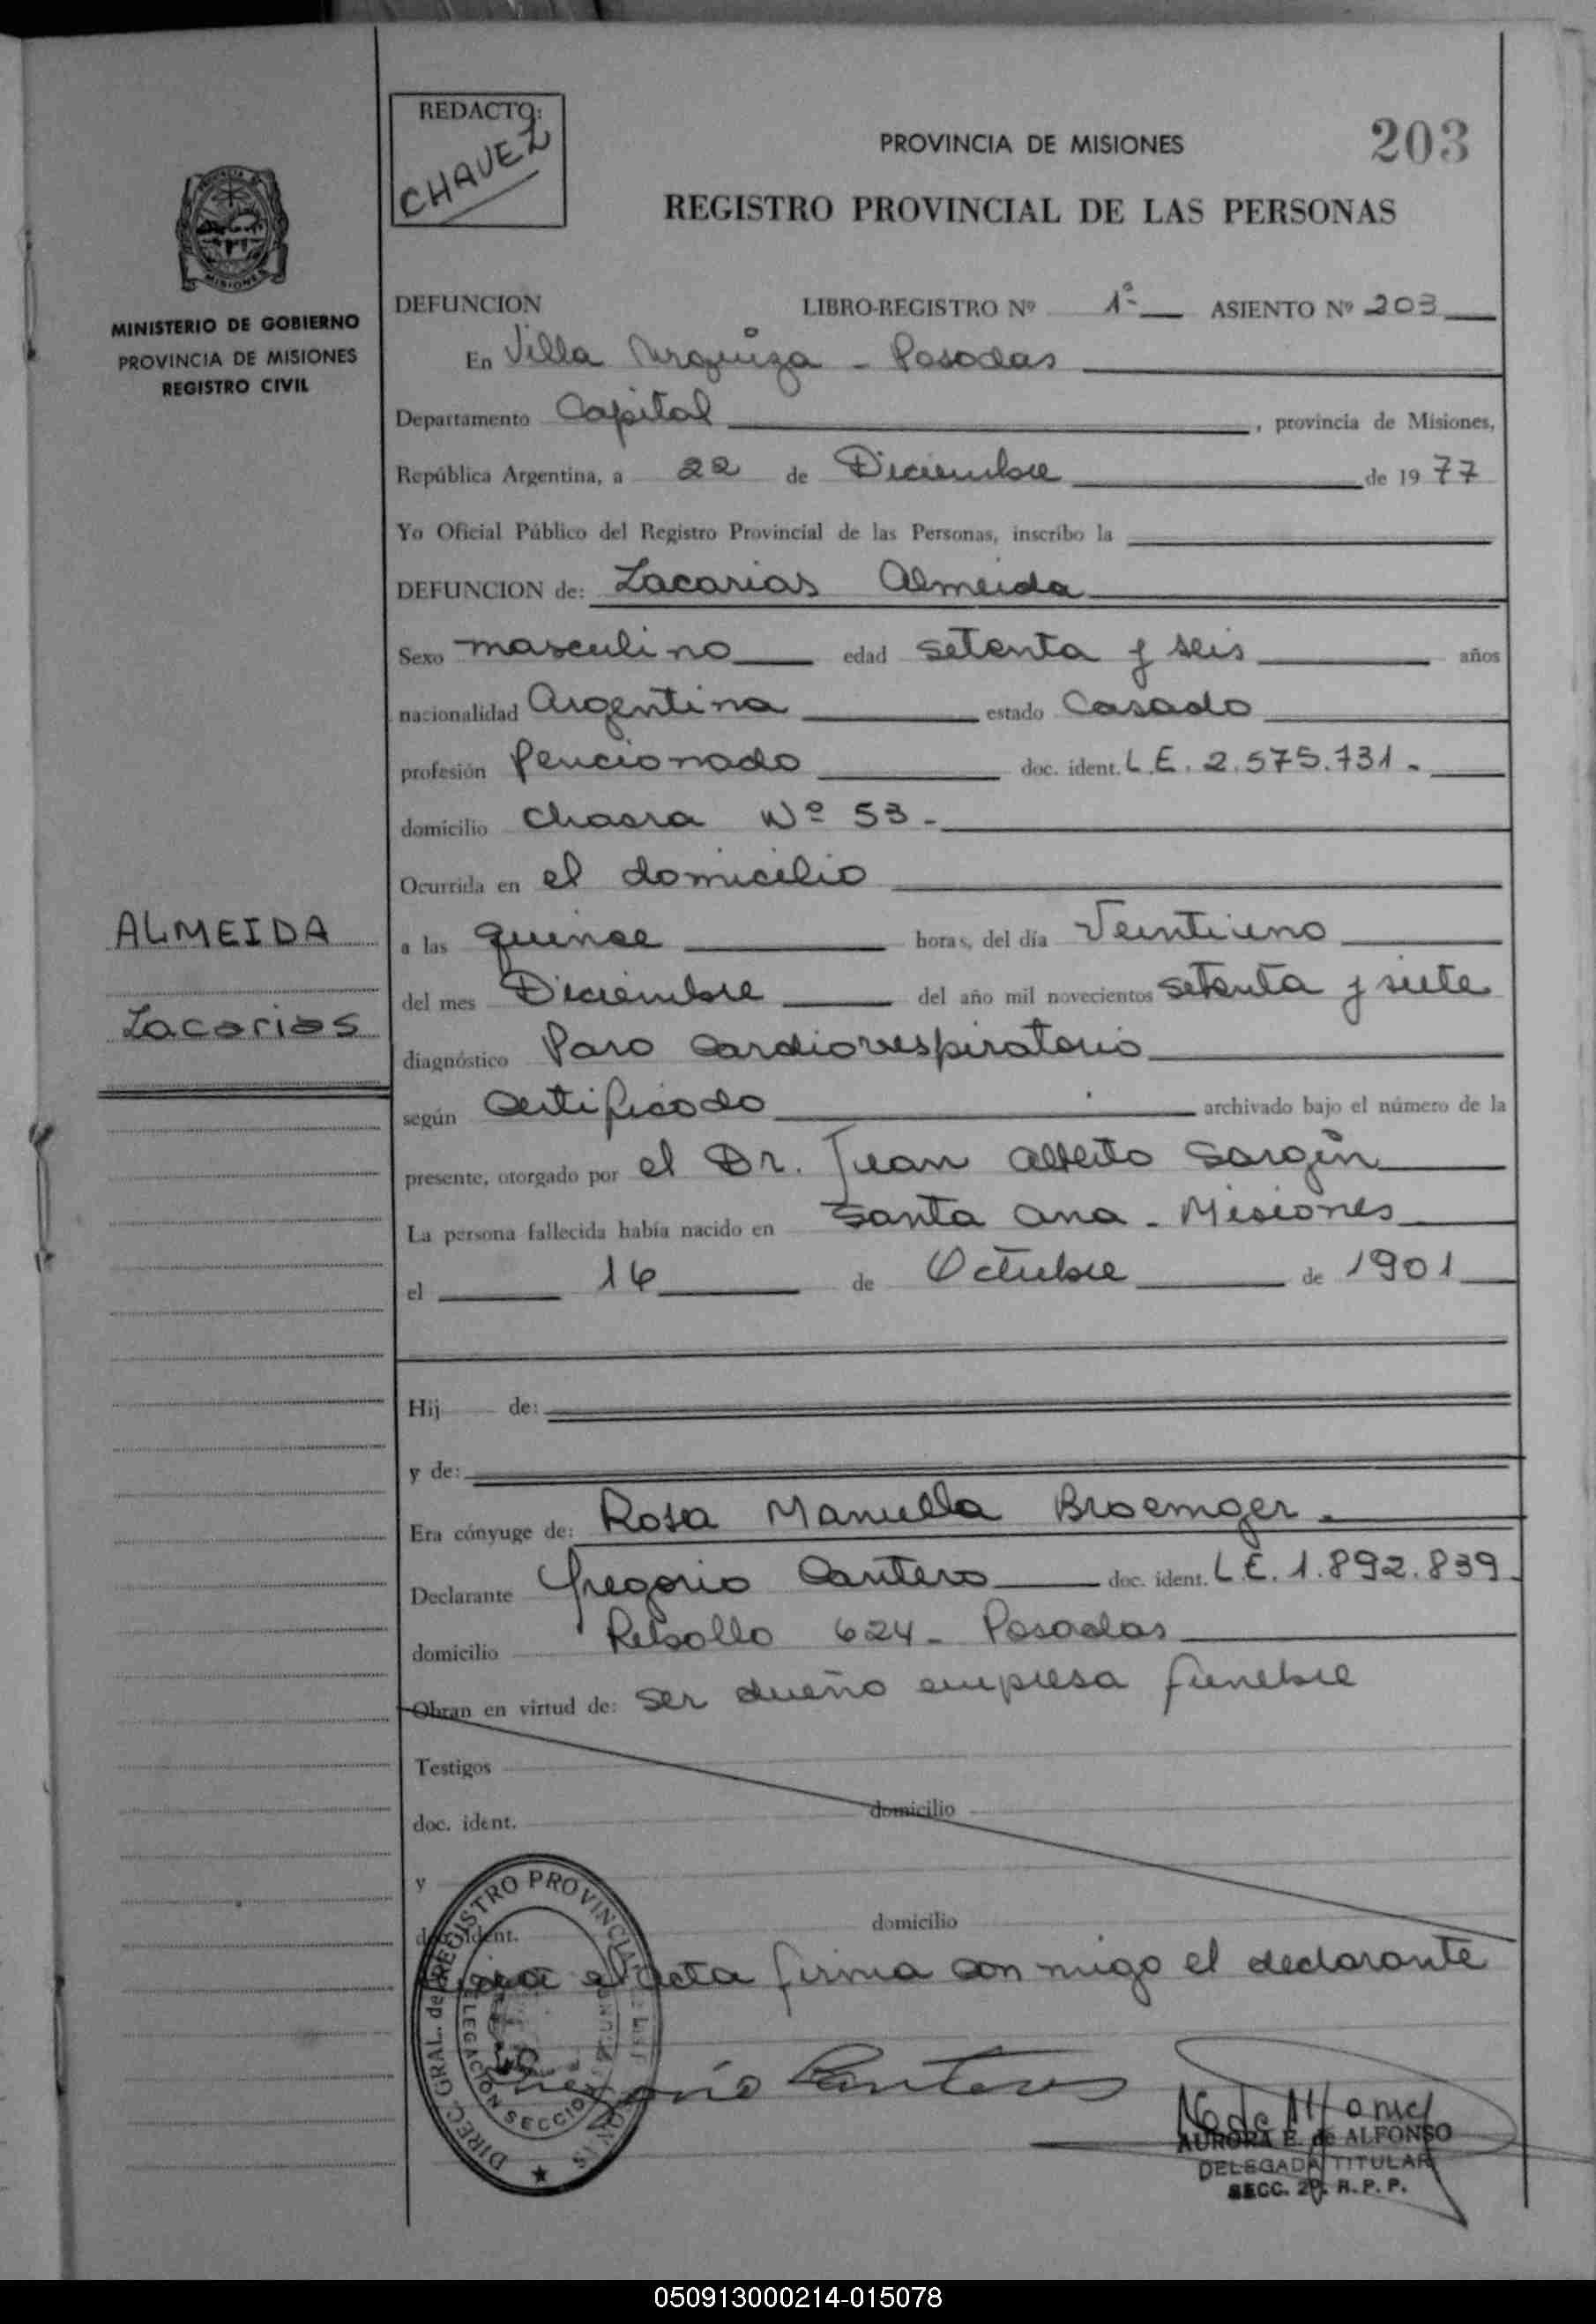 REDACTO:
CHAVEZ
PROVINCIA DE MISIONES
203
REGISTRO PROVINCIAL DE LAS PERSONAS
MISIONES
MINISTERIO DE GOBIERNO
PROVINCIA DE MISIONES
REGISTRO CIVIL
DEFUNCION LIBRO-REGISTRO Nº 1º ASIENTO Nº 203
En Villa Urquiza - Posadas
Departamento Capital, provincia de Misiones,
República Argentina, a 22 de Diciembre de 1977
Yo Oficial Público del Registro Provincial de las Personas, inscribo la
DEFUNCION de: Zacarias Almeida
Sexo masculino edad setenta y seis años
nacionalidad Argentina estado Casado
profesión Pencionado doc. ident. L.E. 2.575.731.-
domicilio Chacra Nº 53-
Ocurrida en el domicilio
ALMEIDA
Zacarias
a las quince horas, del día Veintiuno
del mes Diciembre del año mil novecientos setenta y siete
diagnóstico Paro cardiorrespiratorio
según Certificado archivado bajo el número de la
presente, otorgado por el Dr. Juan Alberto
La persona fallecida había nacido en Santa Ana - Misiones
el 16 de Octubre de 1901
Hij de:
y de:
Era cónyuge de: Rosa Manuella
Declarante Gregorio Cantero doc. ident. L.E. 1.892.839
domicilio 624 - Posadas
Obran en virtud de: ser dueño empresa funebre
Testigos
doc. ident. domicilio
y
doc. ident. domicilio
acta firma con migo el declarante
DIREC. GRAL. del REGISTRO PROVINCIAL
DELEGACION SECCION
Gregorio Cantero
AURORA E. de ALFONSO
DELEGADA TITULAR
SECC. 2ª. R. P. P.
050913000214-015078